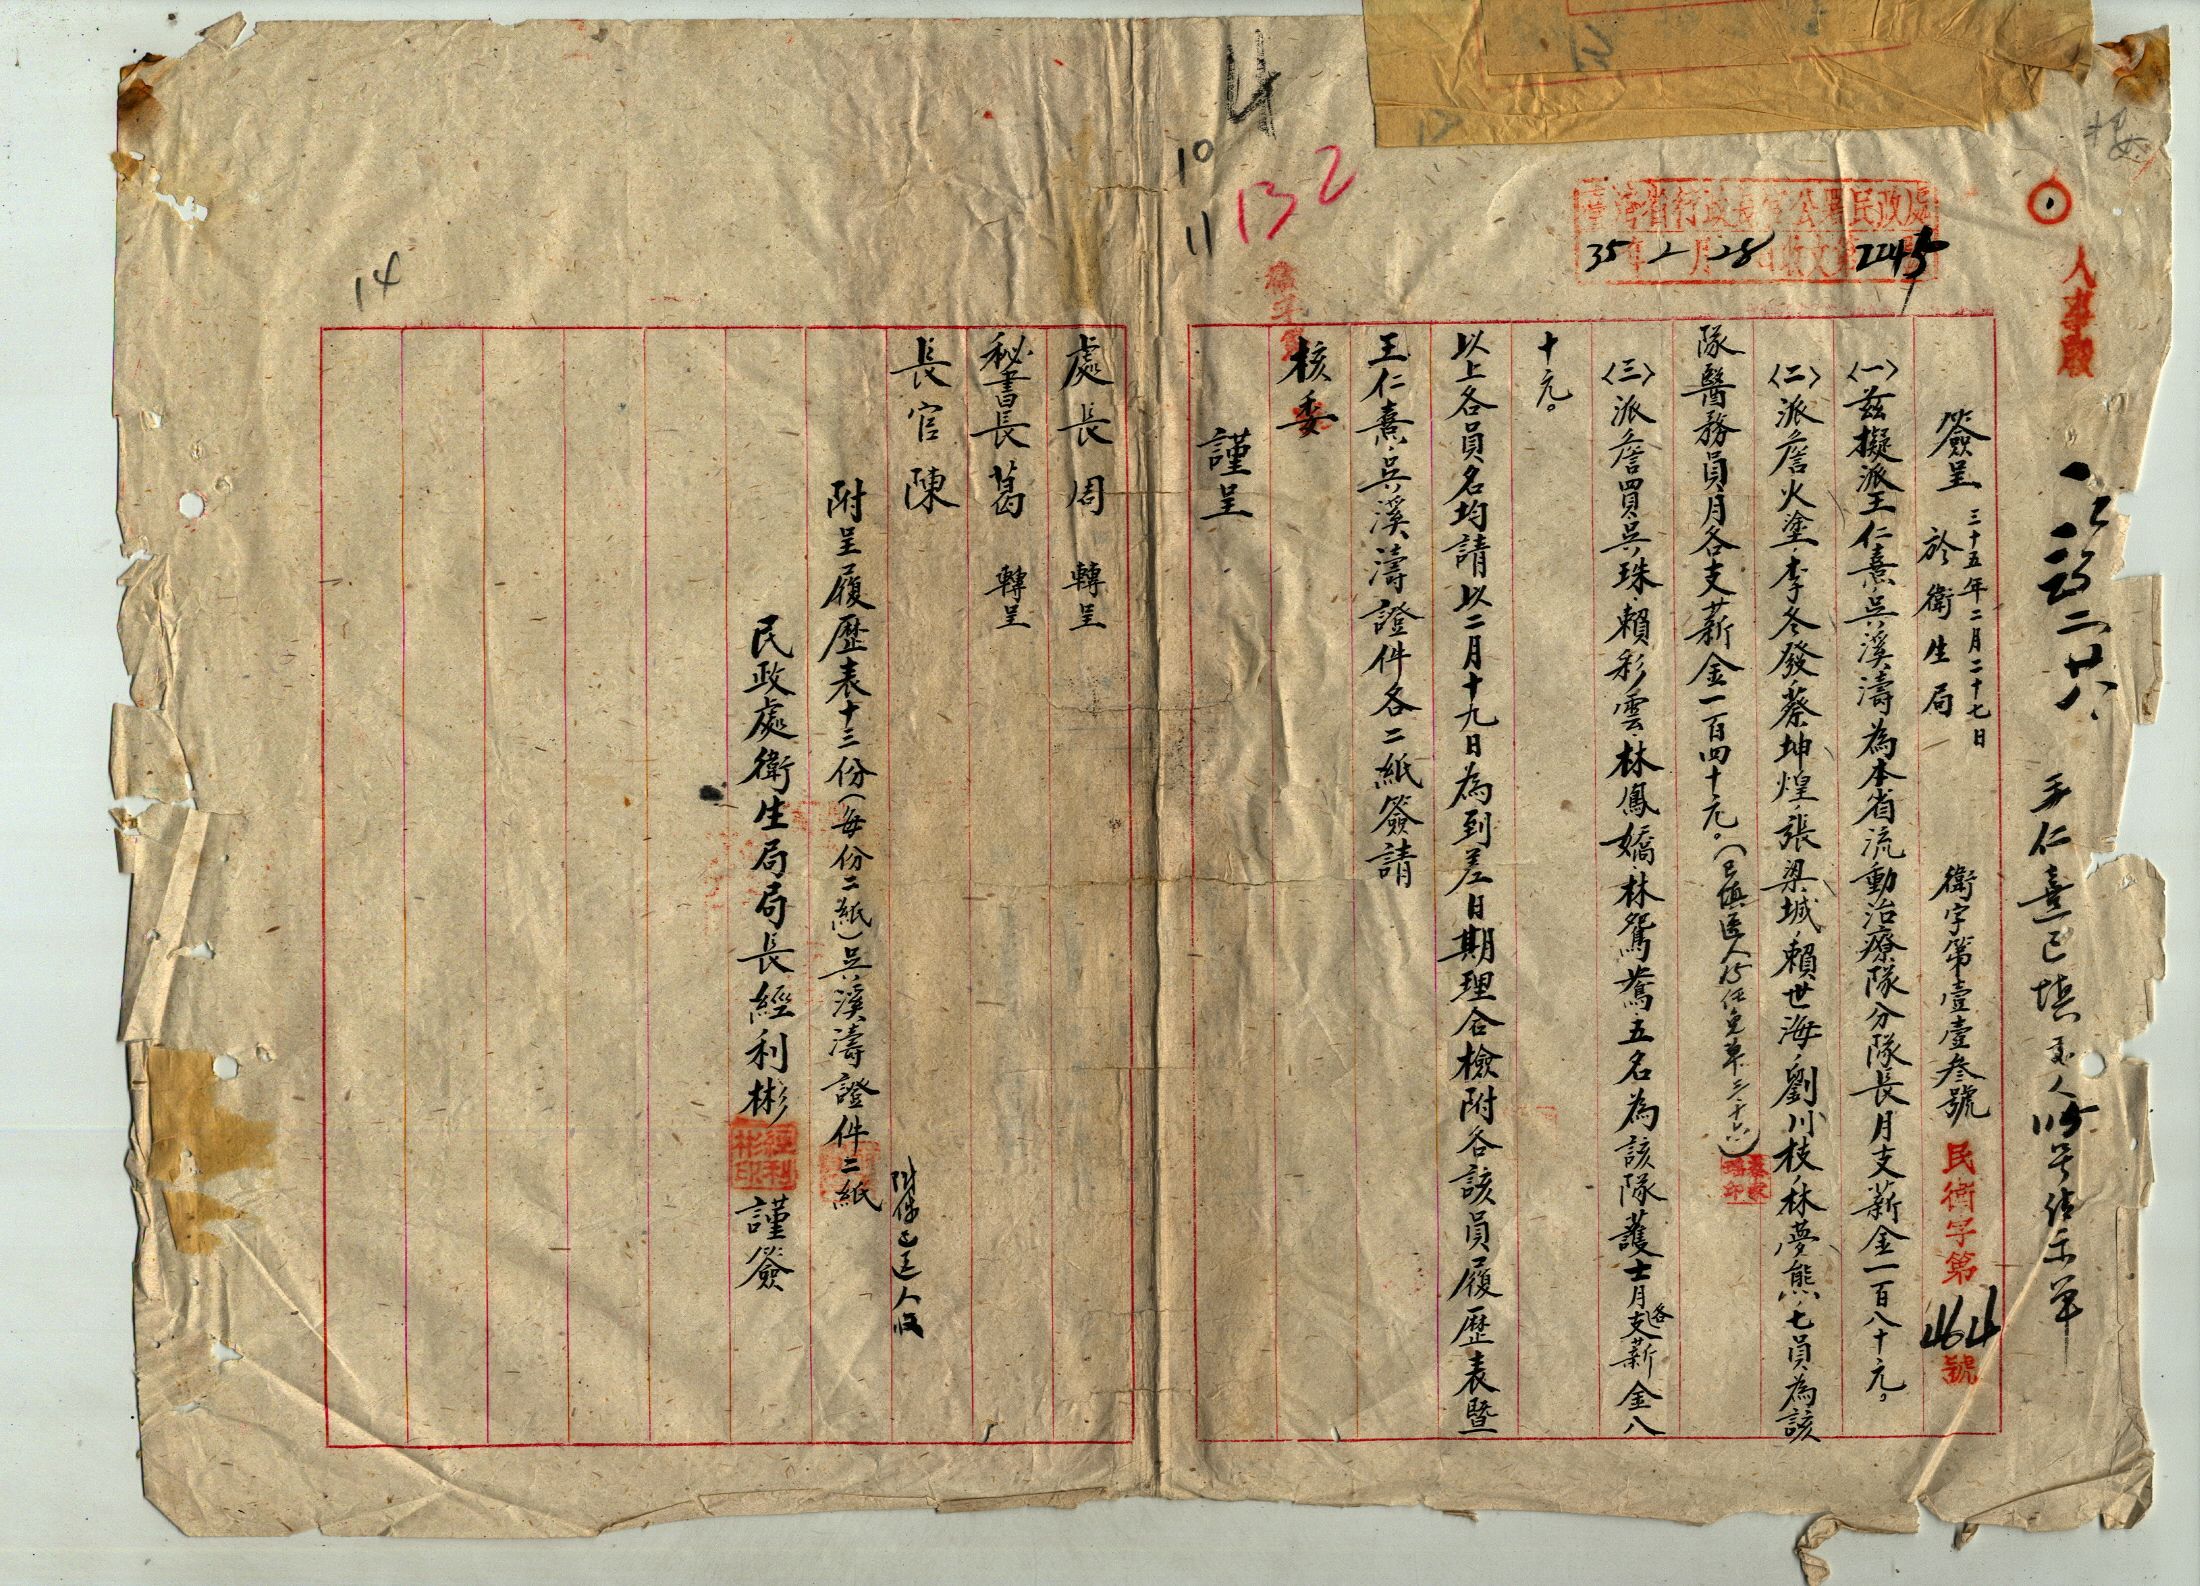 人事股
王仁熹已填
臺灣省行政長官公署民政處
35年2月28日收文第2245號
簽呈 三十五年二月二十七日於衛生局 衛字第壹壹叁號
民衛字第464號
〈一〉茲擬派王仁熹、吳溪濤為本省流動治療隊分隊長月支薪金一百八十元。
〈二〉派詹火塗、李冬發、蔡坤煌、張梁城、賴世海、劉川枝、林夢熊、七員為該
隊醫務員月各支薪金一百四十元。
〈三〉派詹買吳珠、賴彩雲、林鳳嬌、林鴛鴦、五名為該隊護士月各支薪金八
十元。
以上各員名均請以二月十九日為到差日期理合檢附各該員履歷表暨
王仁熹、吳溪濤證件各二紙簽請
核委
謹呈
處長周 轉呈
秘書長葛 轉呈
長官陳
附呈履歷表十三份（每份二紙）吳溪濤證件二紙
民政處衛生局局長經利彬 謹簽
經利彬印
132
4
10
11
14